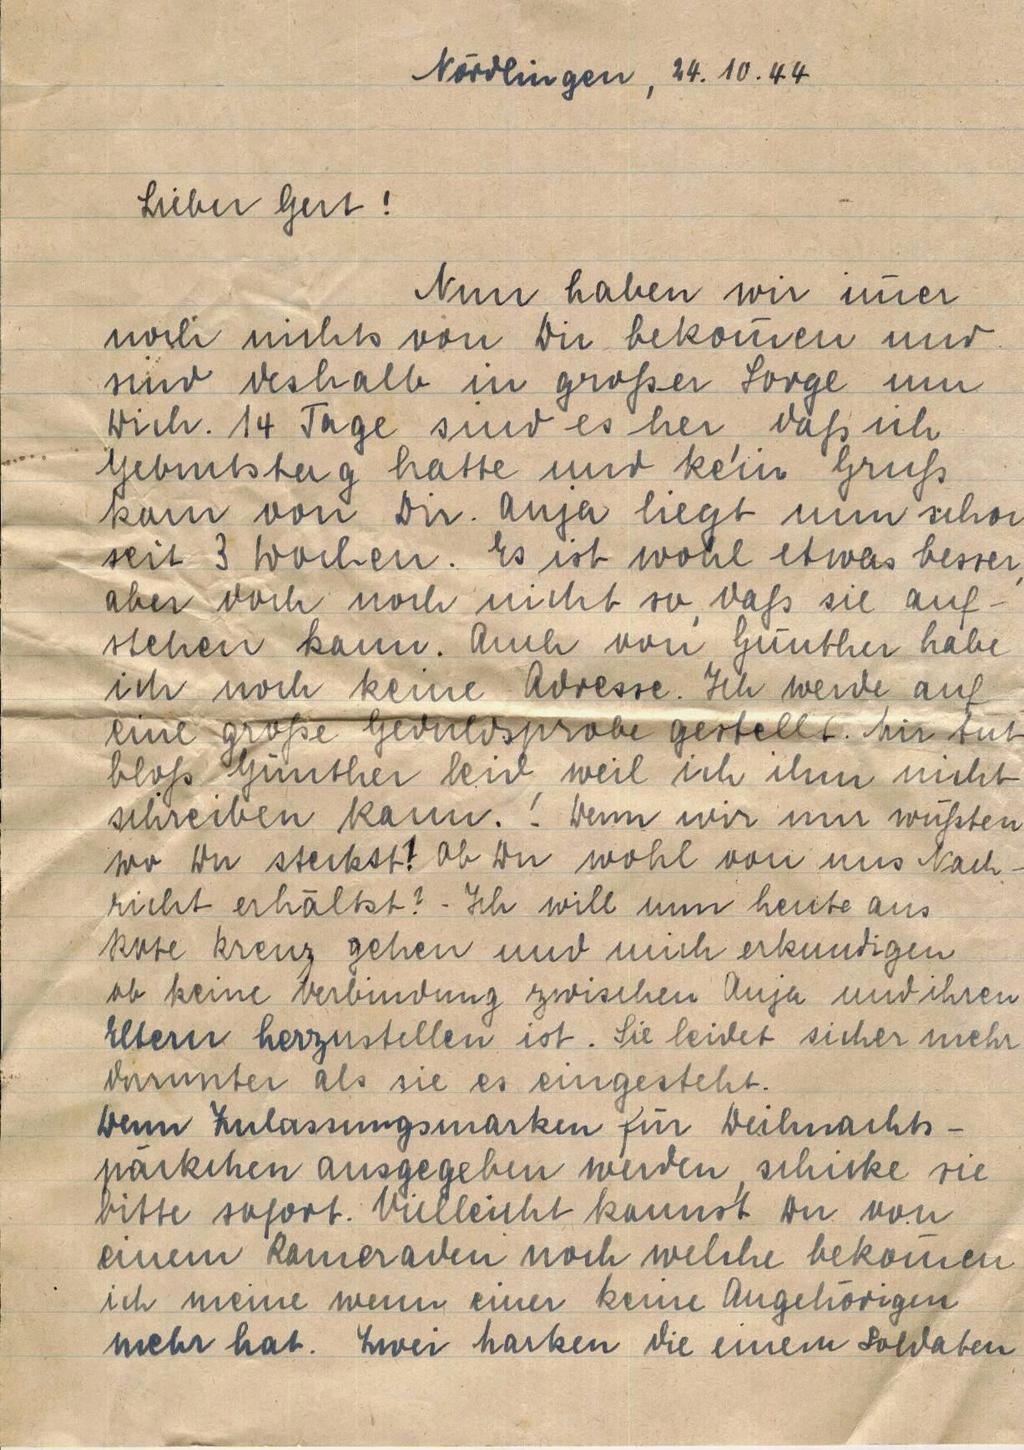 Nördlingen, 24.10.44
Lieber Gert!
Nun haben wir im̄er
noch nichts von Dir bekom̄en und
sind deshalb in großer Sorge um
Dich. 14 Tage sind es her, daß ich
Geburtstag hatte und kein Gruß
kam von Dir. Anja liegt nun schon
seit 3 Wochen. Es ist wohl etwas besser,
aber doch noch nicht so, daß sie auf-
stehen kann. Auch von Günther habe
ich noch keine Adresse. Ich werde auf
eine große Geduldsprobe gestellt. Mir tut
bloß Günther leid, weil ich ihm nicht
schreiben kann.! Wenn wir nur wüßten
wo Du steckst! Ob Du wohl von uns Nach-
richt erhältst? - Ich will nun heute aus
Rote Kreuz gehen und mich erkundigen
ob keine Verbindung zwischen Anja und ihren
Eltern herzustellen ist. Sie leidet sicher mehr
darunter als sie es eingesteht.
Wenn Zulassungsmarken für Weihnachts-
päckchen ausgegeben werden, schicke sie
bitte sofort. Vielleicht kannst Du von
einem Kameraden noch welche bekom̄en
ich meine wenn einer keine Angehörigen
mehr hat. Zwei Marken die einem Soldaten